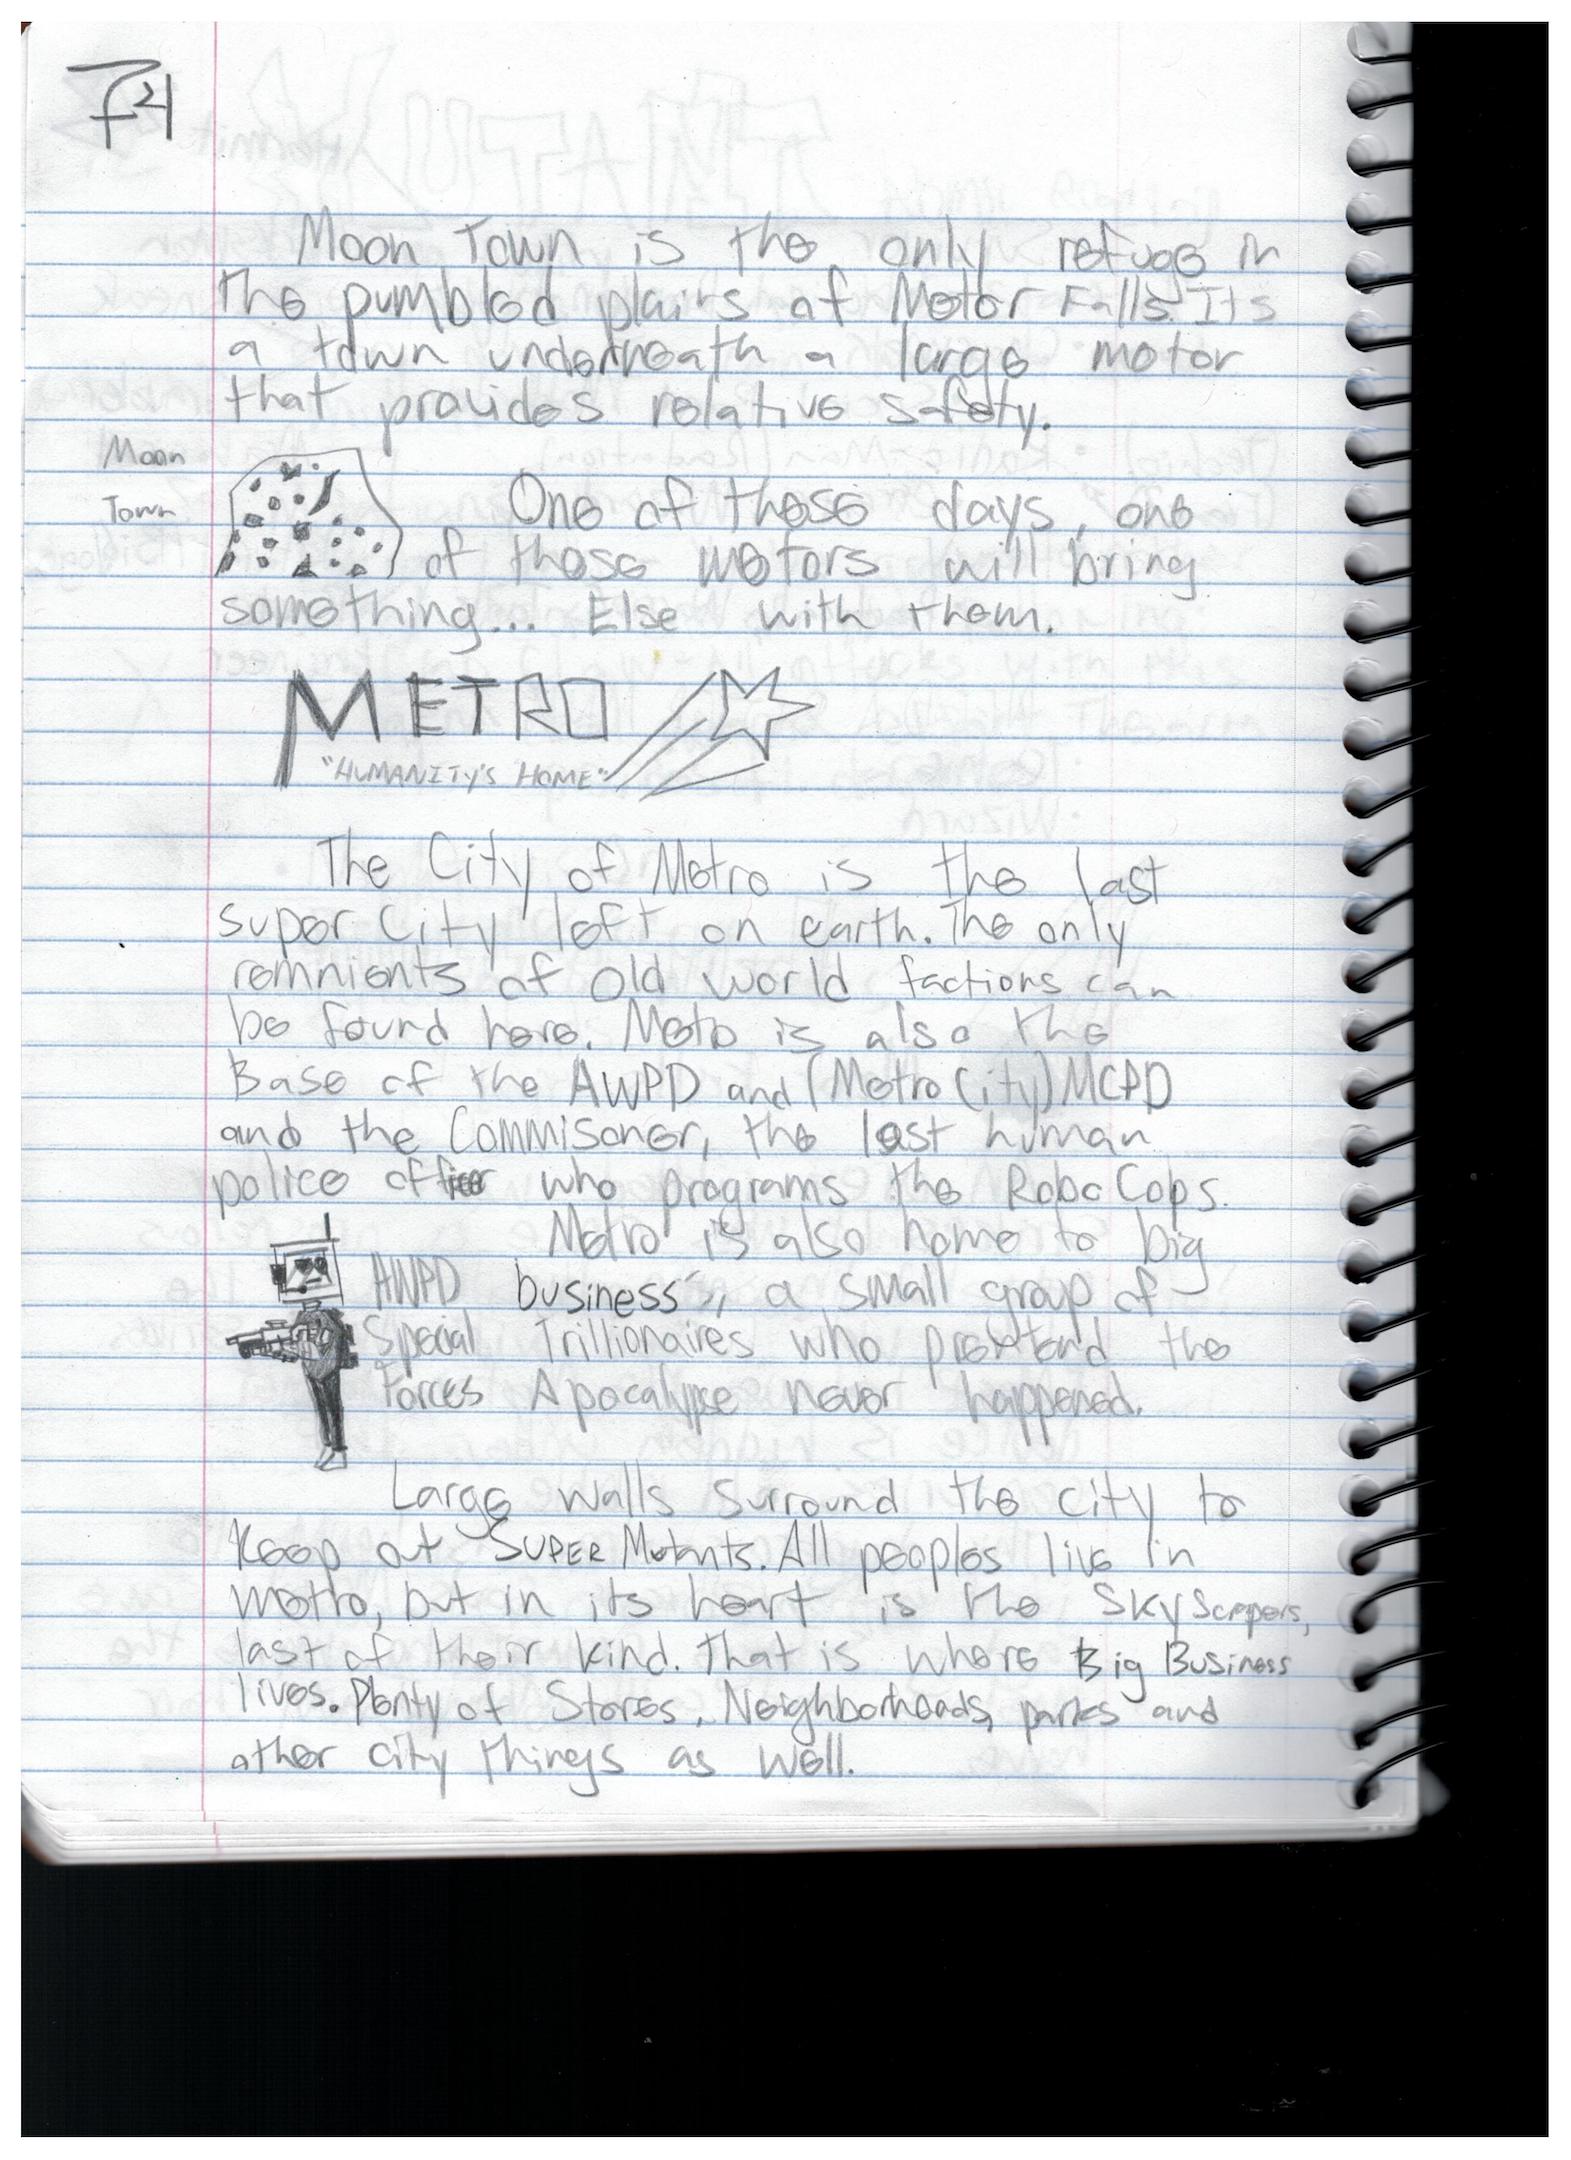 F4
Moon Town is the only refuge in
the pumbled plains of Motor Falls. Its
a town underneath a large motor
that provides relative safety.
Moon
Town
One of these days, one
of those motors will bring
something... Else with them.
METRO
"HUMANITY'S HOME"
The City of Metro is the last
super City left on earth. The only
remnients of old world factions can
be found here. Meto is also the
Base of the AWPD and (Metro City) MCPD
and the Commisoner, the last human
police officer who programs the Robo Cops.
Metro is also home to big
business, a small group of
Trillionaires who pretend the
Apocalypse never happened.
AWPD
Special
Forces
Large walls surround the city to
Keep out SUPER Mutants. All peoples live in
metro, but in its heart is the SkyScrapers,
last of their kind. That is where Big Business
lives. Plenty of Stores, Neighborhoods, parks and
other city things as well.